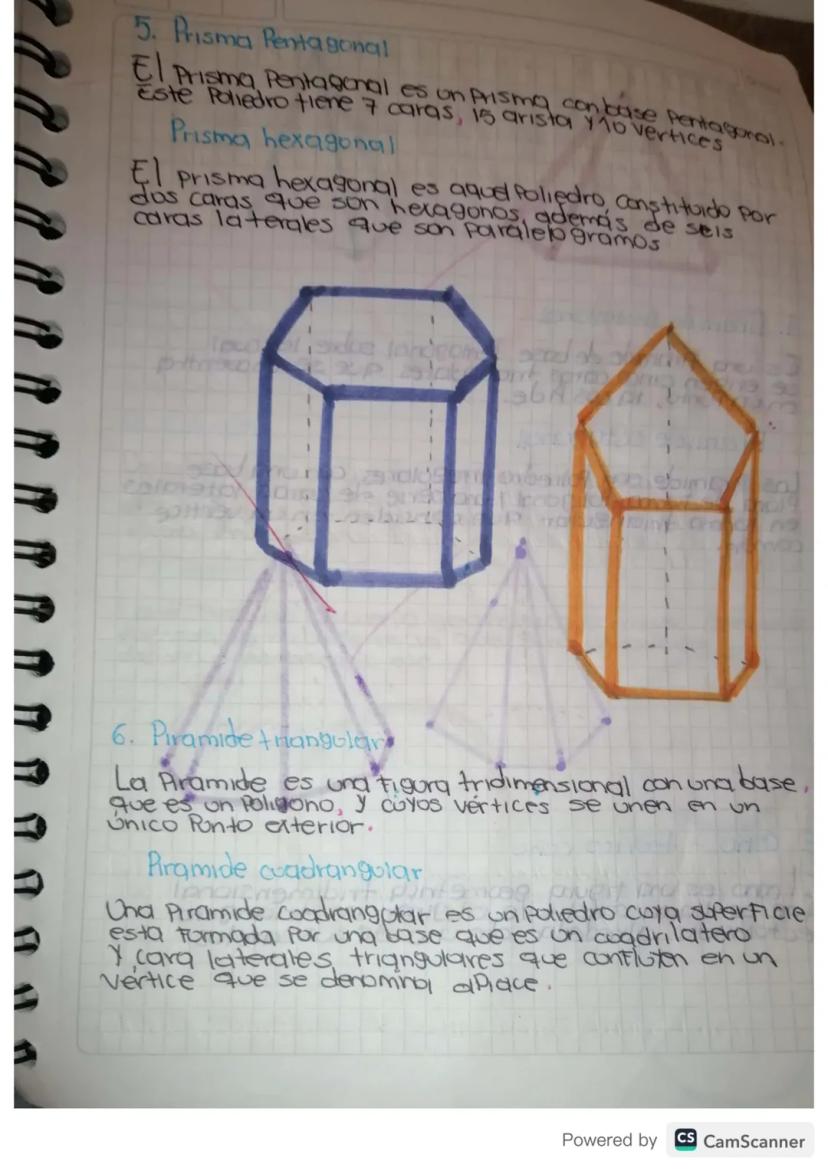 5. Prisma Pentagonal
El Prisma Pentagonal es un Prisma con base Pentagonal.
Este Poliedro tiene 7 caras, 15 arista y 10 vertices
Prisma hexagonal
El prisma hexagonal es aquel Poliedro, constituido por
dos caras que son hexagonos, además de seis
caras laterales que son paralelogramos
6. Piramide triangular
La Piramide es una figura tridimensional con una base,
que es un Poligono, y cuyos vértices se unen en un
único Punto exterior.
Piramide cuadrangular
Una Piramide cuadrangular es un poliedro cuya superficie
esta Formada Por una base que es un cuadrilatero
y cara laterales triangulares que confluten en un
vértice que se
Powered by CS CamScanner